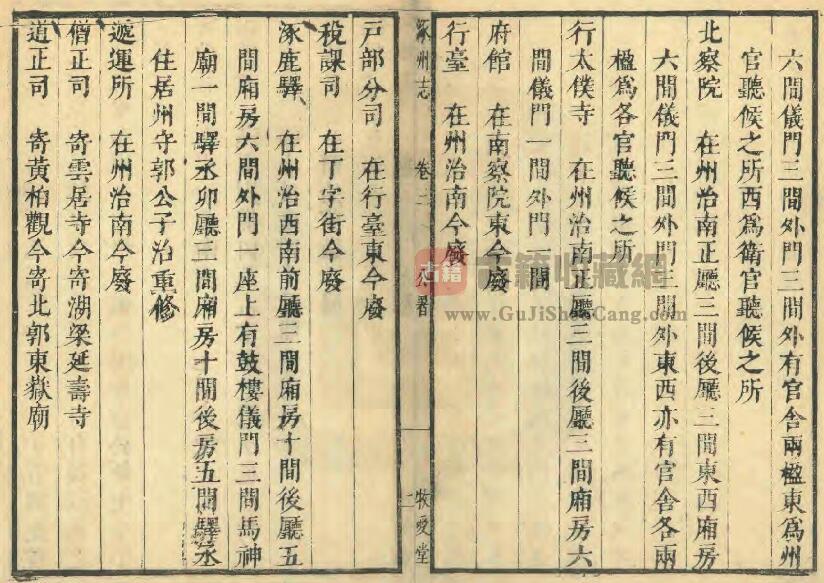 六間儀門三間外門三間外有官舎兩楹東爲州
官聽候之所西爲衛官聽候之所
北察院 在州治南正廳三間後廳三間東西廂房
六間儀門三間外門三間外東西亦有官舎各兩
楹爲各官聽候之所
行太僕寺 在州治南正廳三間後廳三間廂房六
間儀門一間外門一間
府館 在南察院東今廢
行臺 在州治南今廢
涿州志 卷二 公署 二 牧愛堂
戶部分司 在行臺東今廢
稅課司 在丁字街今廢
涿鹿驛 在州治西南前廳三間廂房十間後廳五
間廂房六間外門一座上有鼓樓儀門三間馬神
廟一間驛丞夘廳三間廂房十間後房五間驛丞
住居州守郭公子治重修
遞運所 在州治南今廢
僧正司 寄雲居寺今寄湖梁延壽寺
道正司 寄黃柏觀今寄北郭東嶽廟
古籍
古籍收藏網
www.GuJiShouCang.com